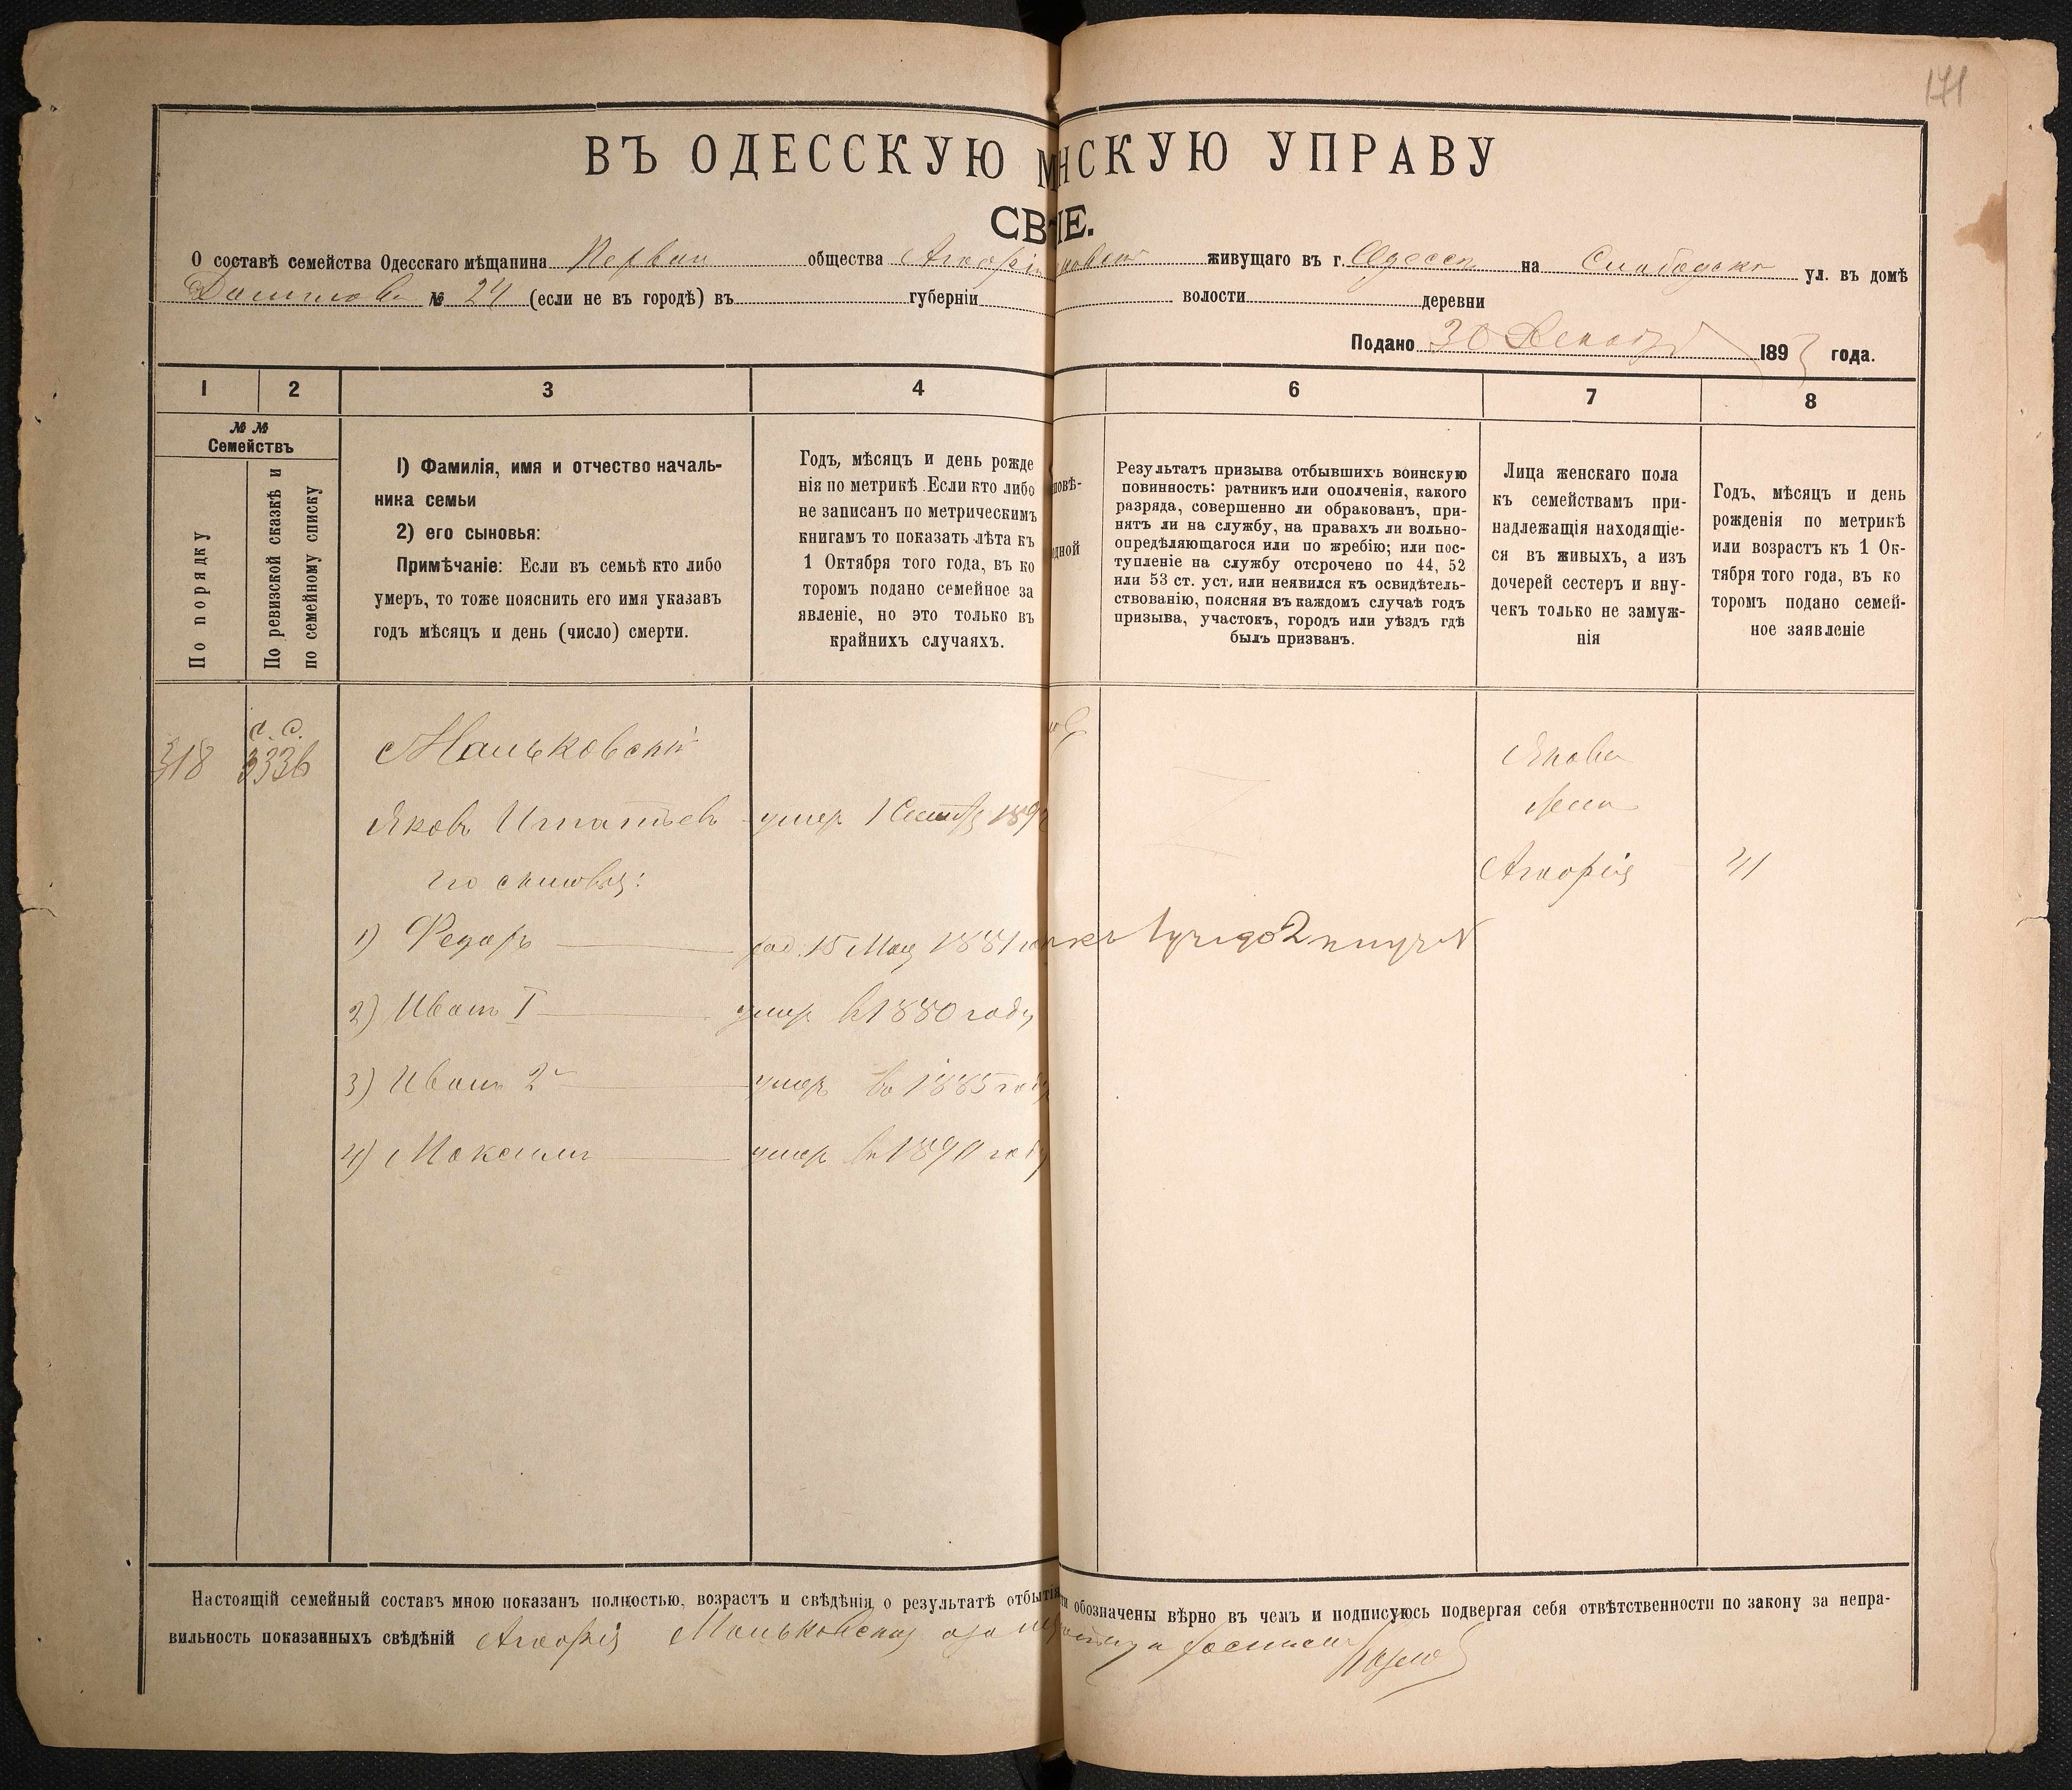 171
ВЪ ОДЕССКУЮ М НСКУЮ УПРАВУ
СВ ІЕ.
О составѣ семейства Одесскаго мѣщанина общества живущаго въ г. Одессѣ на Слободкѣ ул. въ домѣ
№ 24 (если не въ городѣ) въ губерніи волости деревни
Подано 30 1893 года.
1 2 3 4 6 7 8
№ №
Семействъ
По порядку
По ревизской сказкѣ и
по семейному списку
1) Фамилія, имя и отчество началь-
ника семьи
2) его сыновья:
Примѣчаніе: Если въ семьѣ кто либо
умеръ, то тоже пояснить его имя указавъ
годъ мѣсяцъ и день (число) смерти.
Годъ, мѣсяцъ и день рожде
нія по метрикѣ. Если кто либо
не записанъ по метрическимъ
книгамъ то показать лѣта къ
1 Октября того года, въ ко
торомъ подано семейное за
явленіе, но это только въ
крайнихъ случаяхъ.
повѣ-
одной
Результатъ призыва отбывшихъ воинскую
повинность: ратникъ или ополченія, какого
разряда, совершенно ли обракованъ, при-
нятъ ли на службу, на правахъ ли вольно-
опредѣляющагося или по жребію; или пос-
тупленіе на службу отсрочено по 44, 52
или 53 ст. уст. или неявился къ освидѣтель-
ствованію, поясняя въ каждомъ случаѣ годъ
призыва, участокъ, городъ или уѣздъ гдѣ
былъ призванъ.
Лица женскаго пола
къ семействамъ при-
надлежащія находящіе-
ся въ живыхъ, а изъ
дочерей сестеръ и вну-
чекъ только не замуж-
нія
Годъ, мѣсяцъ и день
рожденія по метрикѣ
или возрастъ къ 1 Ок-
тября того года, въ ко
торомъ подано семей-
ное заявленіе
318
с. с.
3336
Маньковскій
Яковъ Игнатьевъ умер 1 189
его сыновья:
1) Федоръ род. 15 Мая 1881
2) Иванъ I умер в 1880 году
3) Иванъ 2й умер въ 1885 году
4) Максимъ умер в 1890 году
Якова
жена
41
Настоящій семейный составъ мною показанъ полностью, возрастъ и свѣдѣнія о результатѣ отбытія ти обозначены вѣрно въ чемъ и подписуюсь подвергая себя отвѣтственности по закону за непра-
вильность показанныхъ свѣдѣній Маньковская